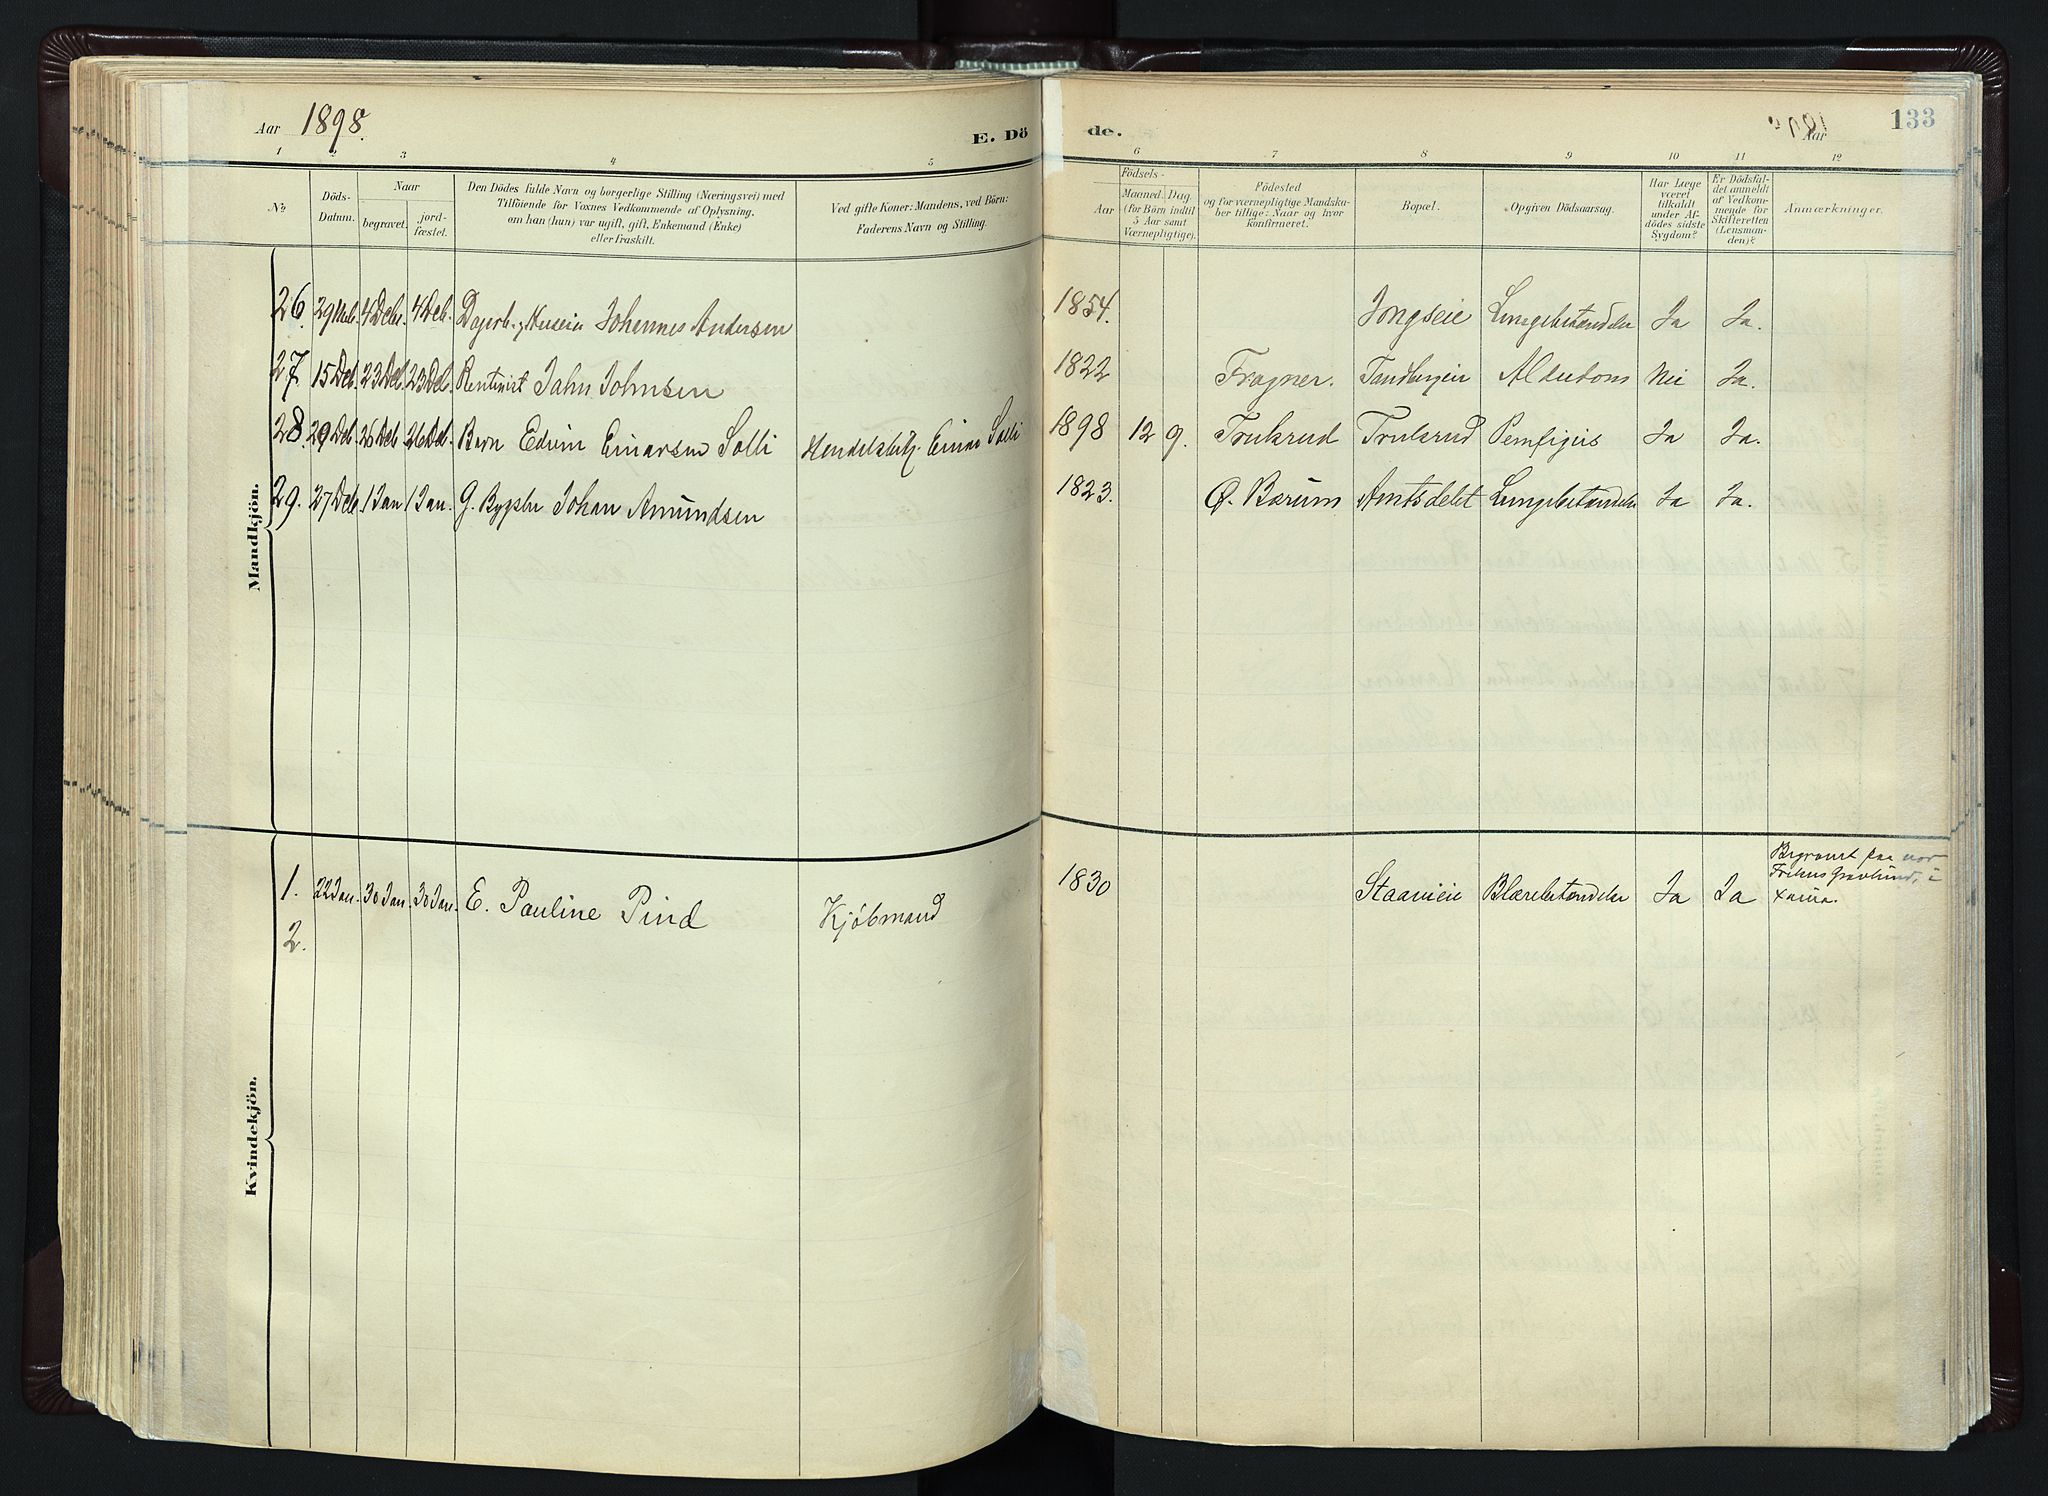 Aar 1898.
E. Dö de.
Aar
133
1 2 3 4 5 6 7 8 9 10 11 12
№
Döds-
Datum.
Naar
begravet.
jord-
fæstet.
Den Dödes fulde Navn og borgerlige Stilling (Næringsvei) med
Tilföiende for Voxnes Vedkommende af Oplysning,
om han (hun) var ugift, gift, Enkemand (Enke)
eller fraskilt.
Ved gifte Koner: Mandens, ved Börn:
Faderens Navn og Stilling.
Födsels-
Aar
Maaned. Dag.
(for Börn indtil
5 Aar samt
Værnepligtige).
Födested
og for værnepligtige Mandska-
ber tillige: Naar og hvor
konfirmeret.
Bopæl.
Opgiven Dödsaarsag.
Har Læge
været
tilkaldt
under Af-
dödes sidste
Sygdom?
Er Dödsfal-
det anmeldt
af Vedkom-
mende for
Skifteretten
(Lensman-
den)?
Anmærkninger.
Mandkjön.
26. 29 Nvb. 4 Deb. 4 Deb. Johannes Andersen 1854. Jongseie Lungebetændelse Ja Ja.
27. 15 Deb. 23 Deb. 23 Deb. Rentenist Jahn Johnsen 1822 Fragner. Tandbergeie Alderdoms Nei Ja.
28. 29 Deb. 26 Deb. 26 Deb. Barn Edvin Einarsen Solli Handelsbetj. Einar Solli 1898 12 9. Trulsrud Trulsrud Pemfigus Ja Ja.
29. 27 Deb. 1 Jan 1 Jan. G. Bygselm Johan Amundsen 1823. Ø. Bærum Amtsdelet Lungebetændelse Ja Ja.
Kvindekjön.
1. 22 Jan. 30 Jan. 30 Jan. E. Pauline Pind Kjöbmand 1830 Blærebetændelse Ja Ja Begravet paa vor
Frelsers Gravlund, i
2.